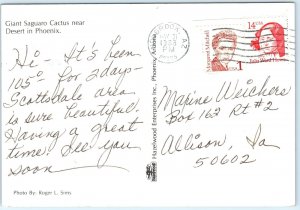 Giant Saguaro Cactus near
Desert in Phoenix.
Hi - It's been
105° for 2 days -
Scottsdale area
is sure beautiful.
Having a great
time! See you
soon
Photo By: Roger L. Sims
Hazelwood Enterprises Inc., Phoenix, Arizona
AZ
PM
Margaret Mitchell
1
14 USA
Julia Ward Howe
Maxine Weichers
Box 162 Rt #2
Allison, Ia
50602